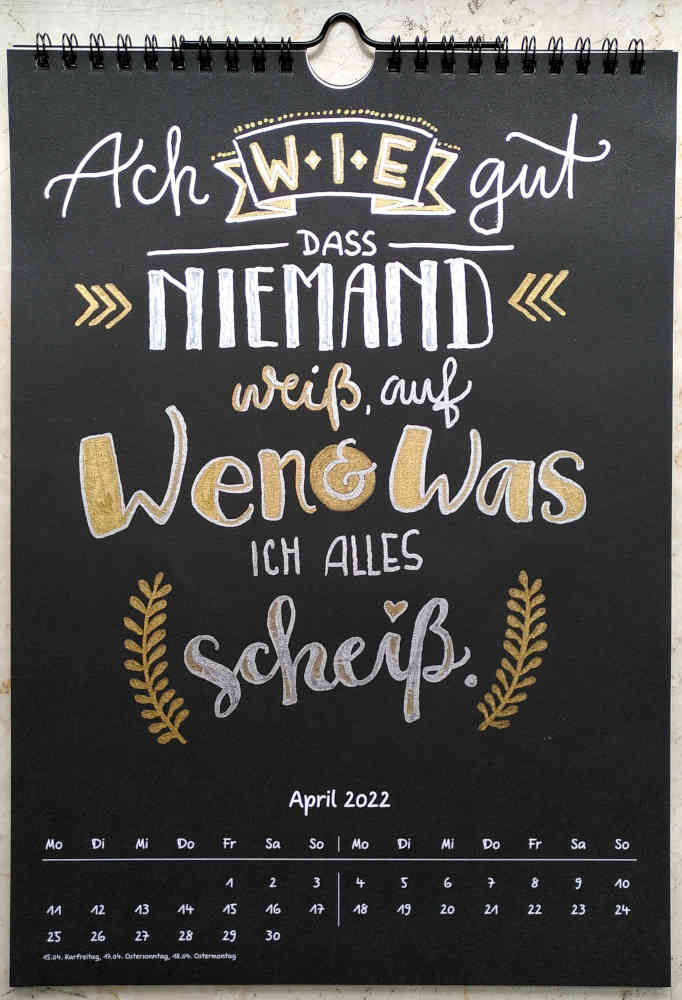 Ach W·I·E gut
DASS
NIEMAND
weiß, auf
Wen & Was
ICH ALLES
scheiß.
April 2022
Mo Di Mi Do Fr Sa So Mo Di Mi Do Fr Sa So
1 2 3 4 5 6 7 8 9 10
11 12 13 14 15 16 17 18 19 20 21 22 23 24
25 26 27 28 29 30
15.04. Karfreitag, 17.04. Ostersonntag, 18.04. Ostermontag